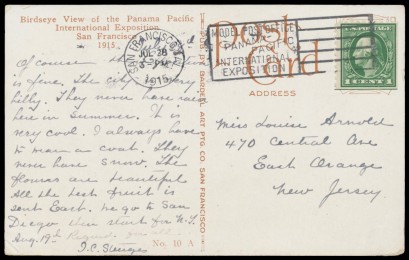 Birdseye View of the Panama Pacific
International Exposition
San Francisco
1915
Post Card
SAN FRANCISCO, CAL.
JUL 28
5-PM
1915
MODEL POST OFFICE
PANAMA
PACI
INTERNATIONAL
EXPOSITION
1 CENT 1
ADDRESS
Of course
is fine. The city is very
hilly. They never have rain
here in Summer. It is
very cool. I always have
to wear a coat. They
never have snow. The
flowers are beautiful
All the best fruit is
sent East. We go to San
Diego then start for N.Y.
Aug. 19th
No. 10 A
PUB. BY BARDELL ART PTG. CO. SAN FRANCISCO
Miss Louise Arnold
470 Central Ave
East Orange
New Jersey